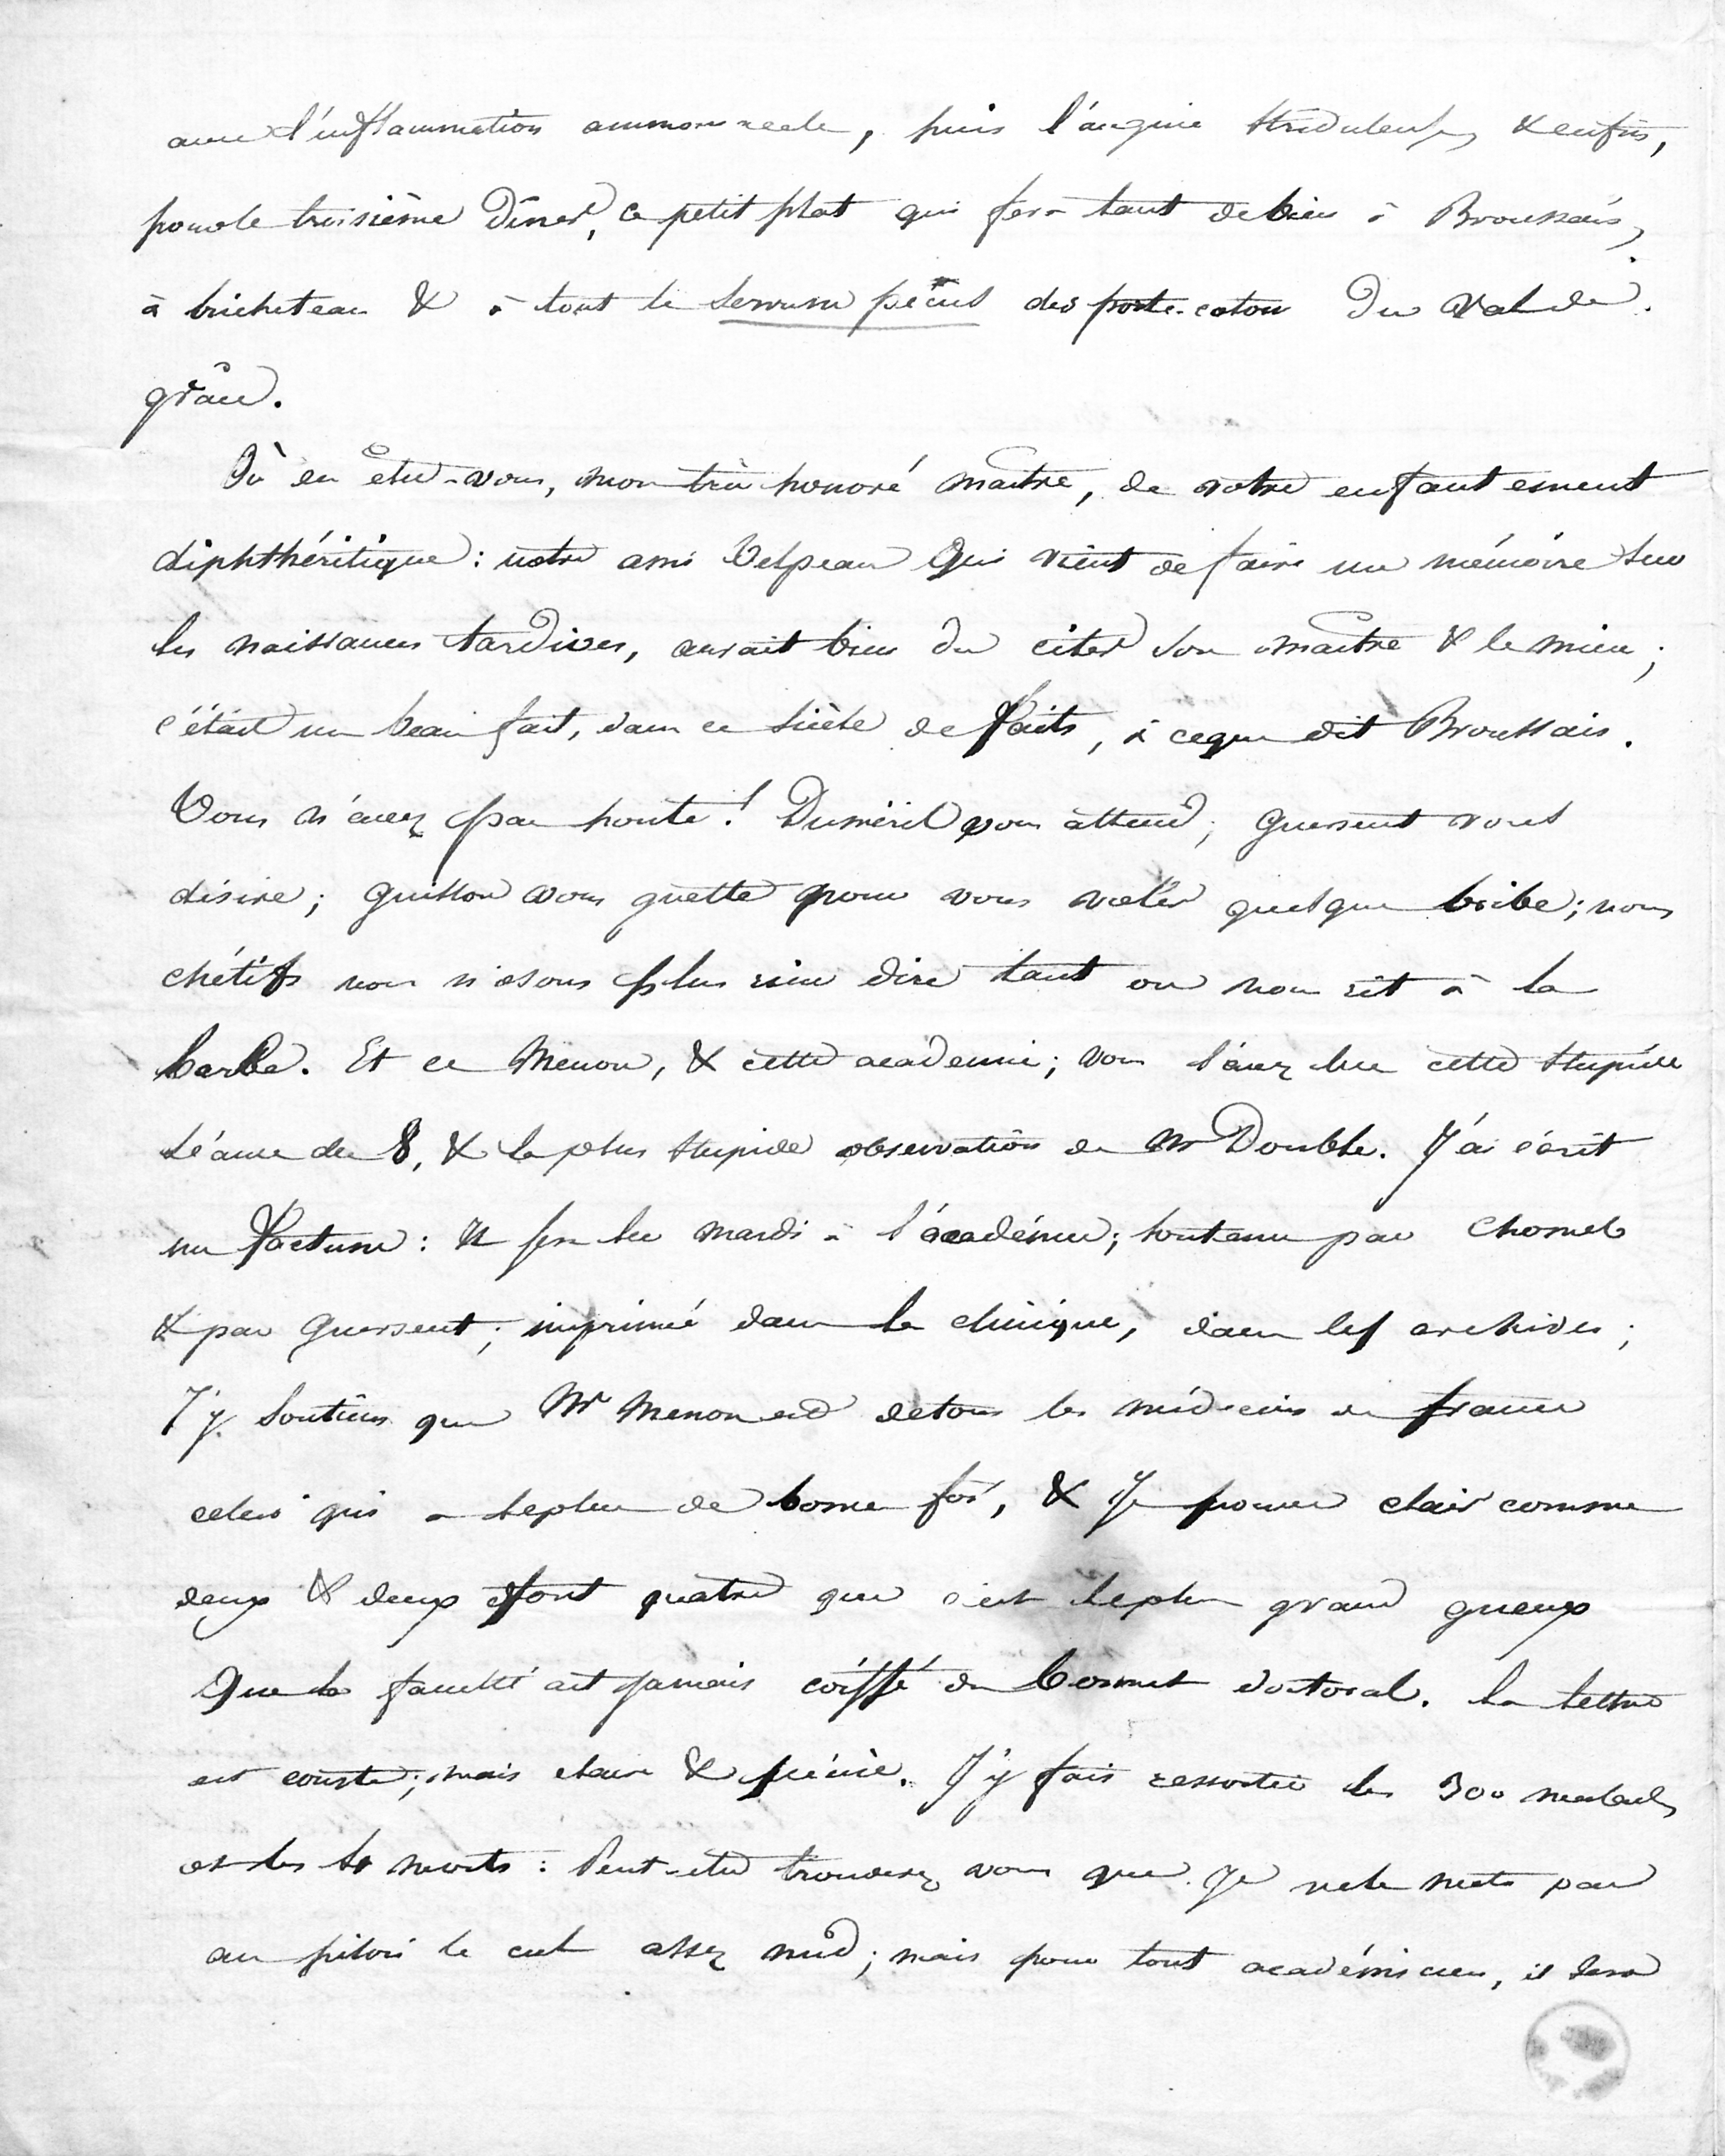 avec l'inflammation ammoniacale, puis l'angine striduleuse, & enfin,
pour le troisième dîner, ce petit plat qui fera tant de bien à Broussais,
à bricheteau & à tout le servum pecus des porte-coton du val de.
grâce.
Où en êtes-vous, mon très honoré maître, de votre enfantement
diphthéritique: notre ami Velpeau qui vient de faire un mémoire sur
les naissances tardives, aurait bien du citer son maître & le mien;
c'était un beau fait, dans ce siècle de faits, à ce que dit Broussais.
Vous n'avez pas honte! Duméril vous attend; guersent vous
désire; guillon vous guette pour vous voler quelque bribe; nous
chétifs nous n'osons plus rien dire tant on nous rit à la
barbe. Et ce Menou, & cette academie; vous l'avez lue cette stupide
séance du 8, & la plus stupide observation de Mr Double. J'ai écrit
un factum: Il sera lu mardi à l'académie; soutenu par Chomel
& par guersent; imprimé dans la clinique, dans les archives;
J'y soutiens que Mr Menou est de tous les médecins de france
celui qui a le plus de bonne foi, & Je prouve clair comme
deux & deux font quatre que c'est le plus grand gueux
que la faculté ait jamais coiffé du bonnet doctoral. la lettre
est courte; mais claire & précise. J'y fais ressortir les 300 malades
et les morts: Peut-etre trouverez vous que Je ne le mets pas
au pilori le cul assez nud; mais pour tout académicien, il sera